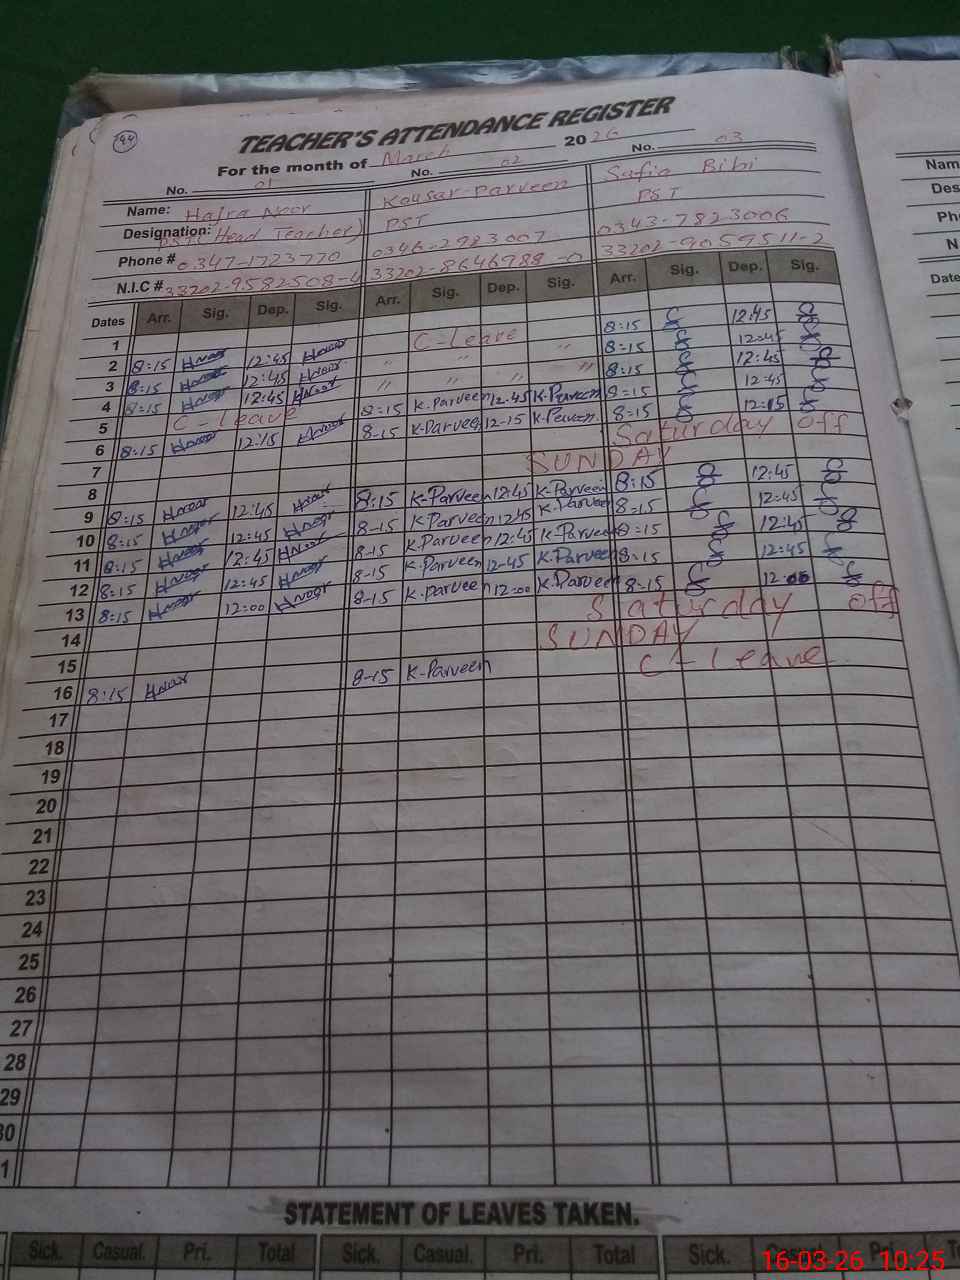 44
TEACHER'S ATTENDANCE REGISTER
For the month of March 2026
No. 01 No. 02 No. 03
Name: Hajra Noor Kousar Parveen Safia Bibi
Designation: PST (Head Teacher) PST PST
Phone # 0347-1723770 0346-2983007 0343-7823006
N.I.C # 33202-9582508-4 33202-8646988-0 33202-9059511-2
Dates Arr. Sig. Dep. Sig. Arr. Sig. Dep. Sig. Arr. Sig. Dep. Sig.
1
2 8:15 Hnoor 12:45 Hnoor C-Leave 8:15 12:45
3 8:15 Hnoor 12:45 Hnoor " " " 8:15 12:45
4 8:15 Hnoor 12:45 Hnoor " " " " 8:15 12:45
5 C-Leave 8:15 K.Parveen 12.45 K.Parveen 8:15 12:45
6 8:15 Hnoor 12:15 Hnoor 8-15 K.Parveen 12-15 K.Parveen 8:15 12:15
7 Saturday off
8 SUNDAY
9 8:15 Hnoor 12:45 Hnoor 8:15 K-Parveen 12:45 K-Parveen 8:15 12:45
10 8:15 Hnoor 12:45 Hnoor 8-15 K.Parveen 12.45 K.Parveen 8-15 12:45
11 8:15 Hnoor 12:45 Hnoor 8-15 K.Parveen 12:45 K.Parveen 8:15 12:45
12 8:15 Hnoor 12:45 Hnoor 8-15 K.Parveen 12-45 K.Parveen 8:15 12:45
13 8:15 Hnoor 12:00 Hnoor 8-15 K.Parveen 12:00 K.Parveen 8-15 12:00
14 Saturday off
15 SUNDAY
16 8:15 Hnoor 8-15 K-Parveen C-Leave
17
18
19
20
21
22
23
24
25
26
27
28
29
30
1
STATEMENT OF LEAVES TAKEN.
Sick. Casual. Pri. Total Sick. Casual. Pri. Total Sick. Casual. Pri. T
Nam
Des
Ph
N
Date
16-03-26 10:25